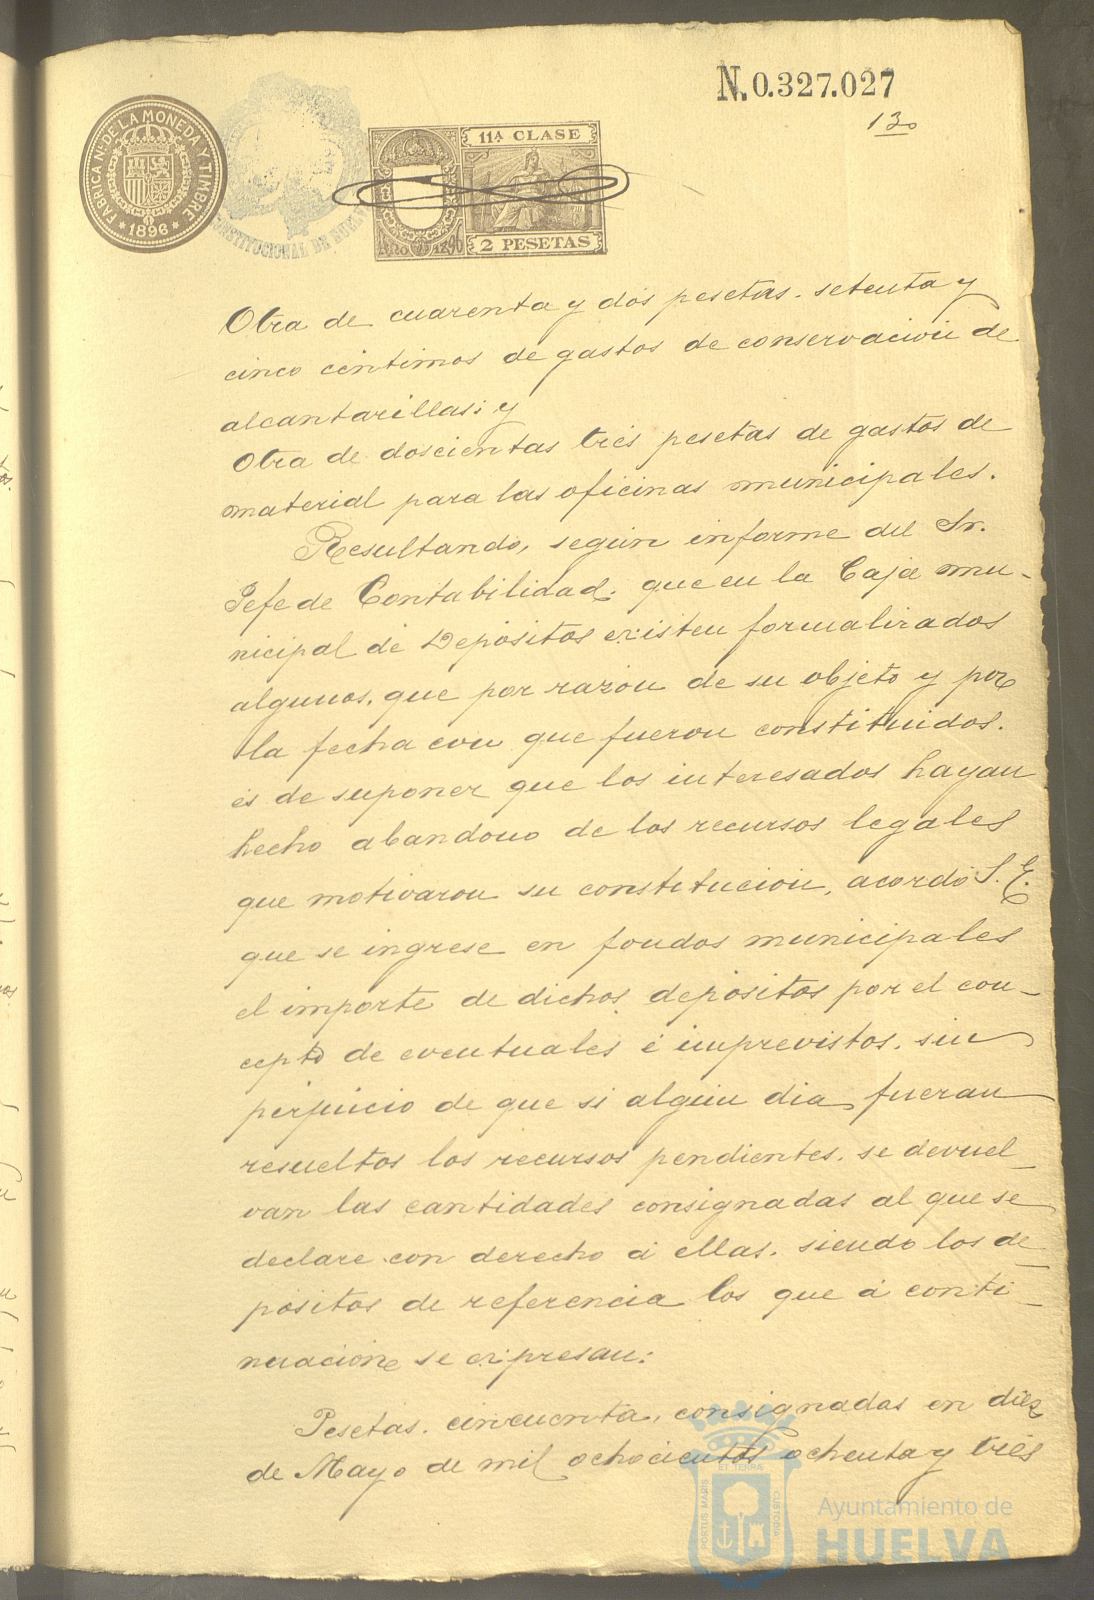 N.0.327.027
130
FABRICA NAL DE LA MONEDA Y TIMBRE
* 1896 *
CONSTITUCIONAL DE HUELVA
11ª CLASE
2 PESETAS
Otra de cuarenta y dos pesetas, setenta y
cinco centimos de gastos de conservación de
alcantarillas; y
Otra de doscientas tres pesetas de gastos de
material para las oficinas municipales.
Resultando, según informe del Sr.
Jefe de Contabilidad, que en la Caja mu-
nicipal de Depósitos existen formalizados
algunos, que por razón de su objeto y por
la fecha con que fueron constituidos,
es de suponer que los interesados hayan
hecho abandono de los recursos legales
que motivaron su constitución, acordó S. E.
que se ingrese en fondos municipales
el importe de dichos depósitos por el con-
cepto de eventuales é imprevistos, sin
perjuicio de que si algún dia fueran
resueltos los recursos pendientes, se devuel-
van las cantidades consignadas al que se
declare con derecho á ellas, siendo los de-
pósitos de referencia los que á conti-
nuacione se expresan:
Pesetas, cincuenta, consignadas en diez
de Mayo de mil ochocientos ochenta y tres
ET TERRÆ
PORTUS MARIS
CUSTODIA
Ayuntamiento de
HUELVA